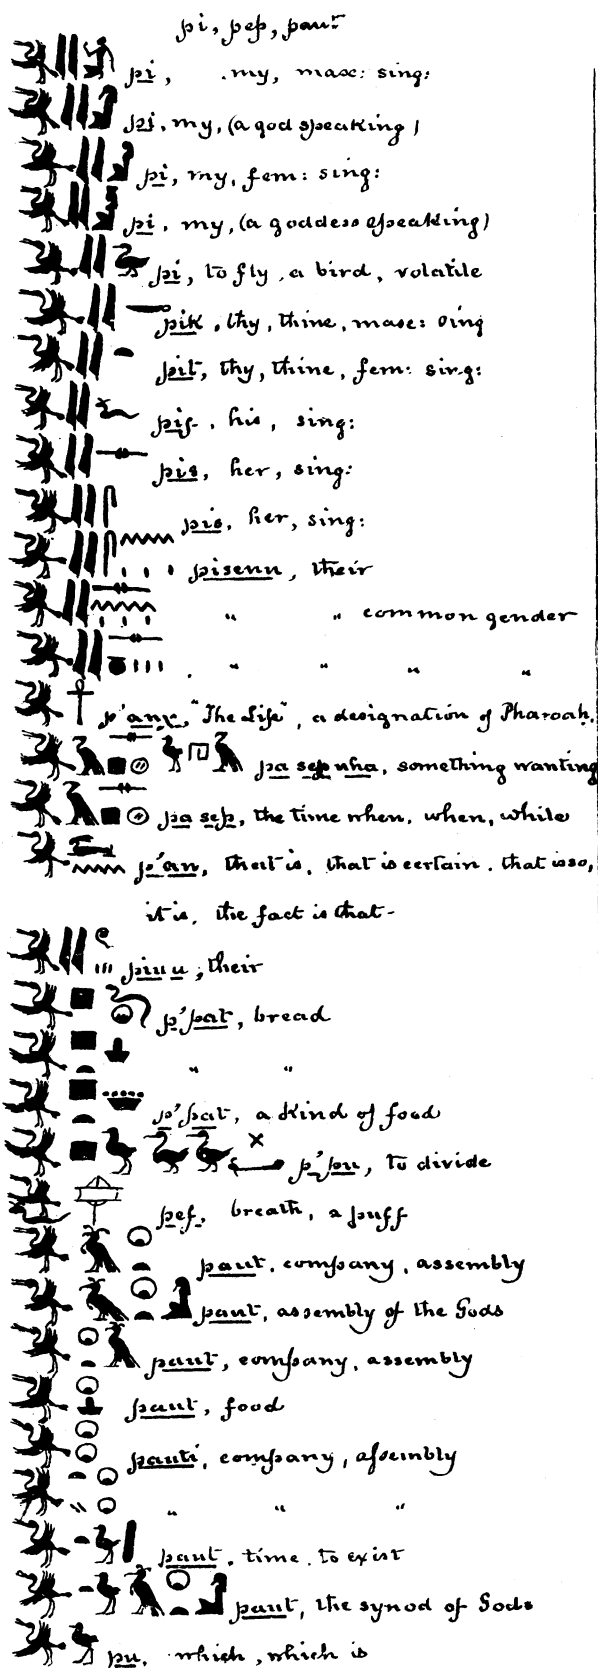 pi, pep, paut
pi, my, masc: sing:
pi, my, (a god speaking)
pi, my, fem: sing:
pi, my, (a goddess speaking)
pi, to fly, a bird, volatile
pik, thy, thine, masc: sing
pit, thy, thine, fem: sing:
pif, his, sing:
pis, her, sing:
pis, her, sing:
pisenu, their
" " common gender
" " " "
p'anχ, "The Life", a designation of Pharoah.
pa sep uha, something wanting
pa sep, the time when, when, while
p'an, that is, that is certain, that is so,
it is, the fact is that-
piu u, their
p'pat, bread
" "
p'pat, a kind of food
p'pu, to divide
pef, breath, a puff
paut, company, assembly
paut, assembly of the Gods
paut, company, assembly
paut, food
pauti, company, assembly
" " "
paut, time, to exist
paut, the synod of Gods
pu, which, which is